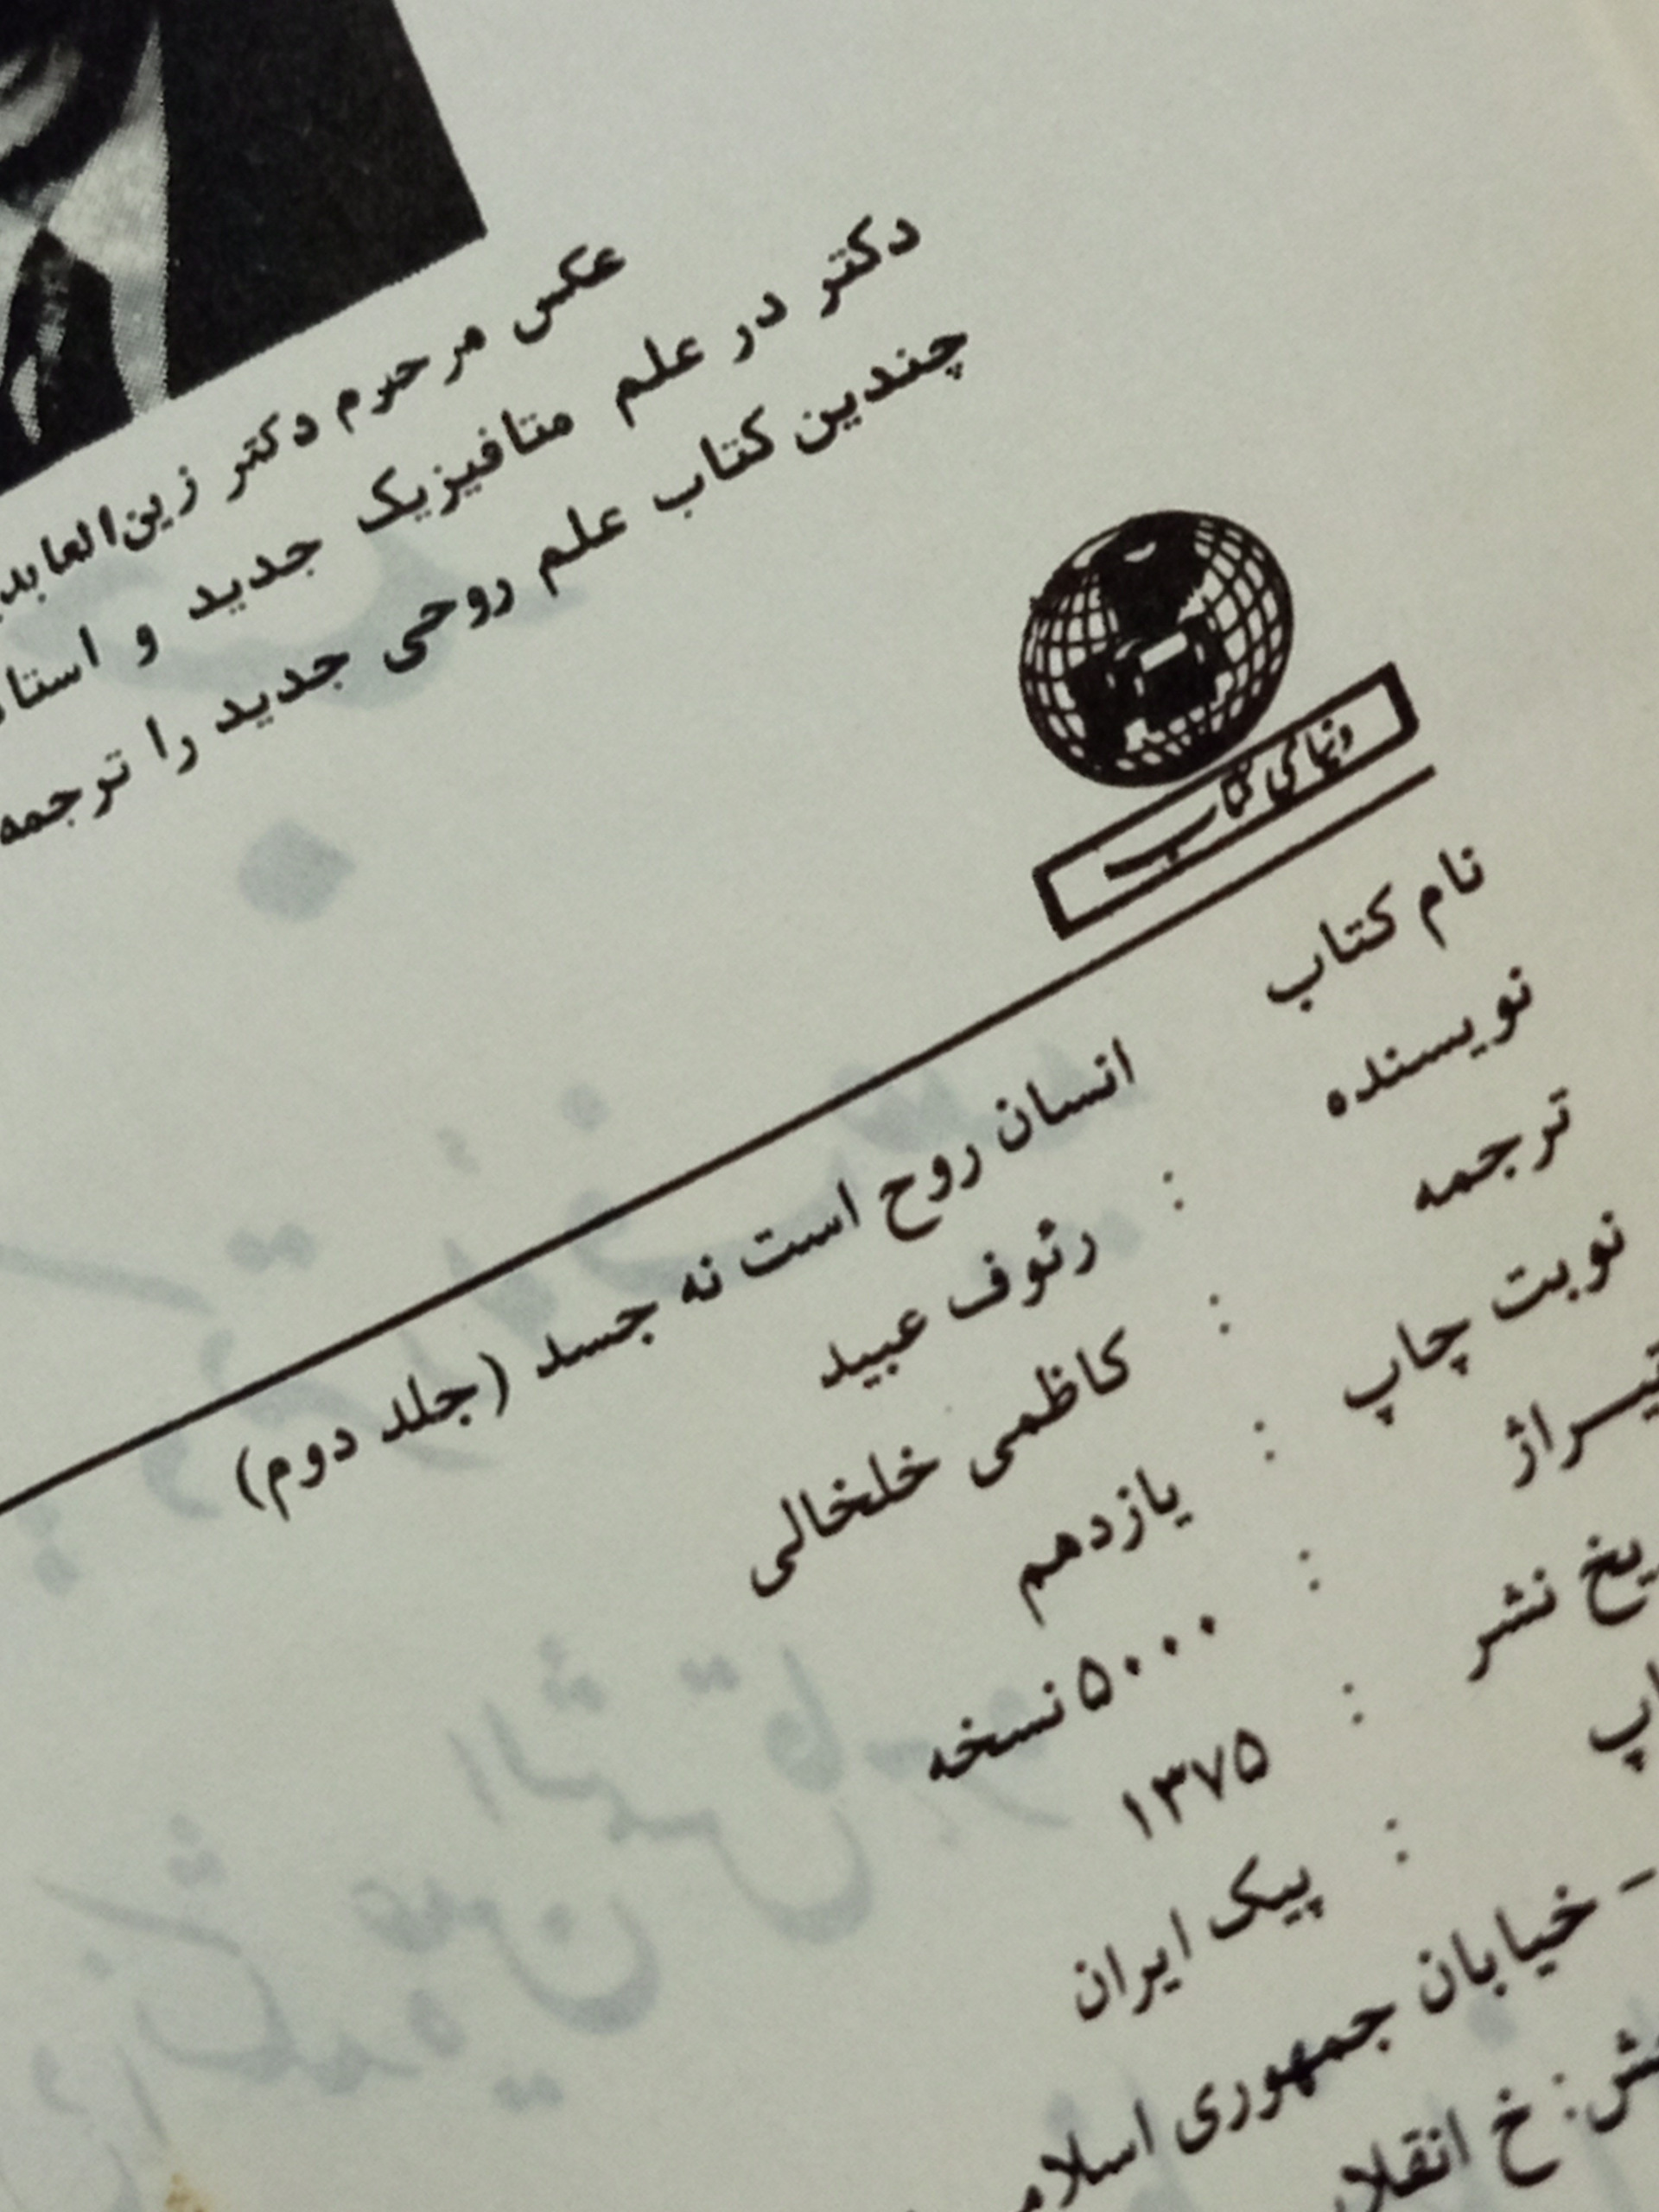 عکس مرحرم دکتر زین‌العابد
دکتر در علم متافیزیک جدید و استا
چندین کتاب علم روحی جدید را ترجمه
دنیای کتاب
نام کتاب : انسان روح است نه جسد (جلد دوم)
نویسنده : رئوف عبید
ترجمه : کاظمی خلخالی
نوبت چاپ : یازدهم
تیراژ : ۵۰۰۰ نسخه
یخ نشر : ۱۳۷۵
اپ : پیک ایران
- خیابان جمهوری اسلام
ش: خ انقلا